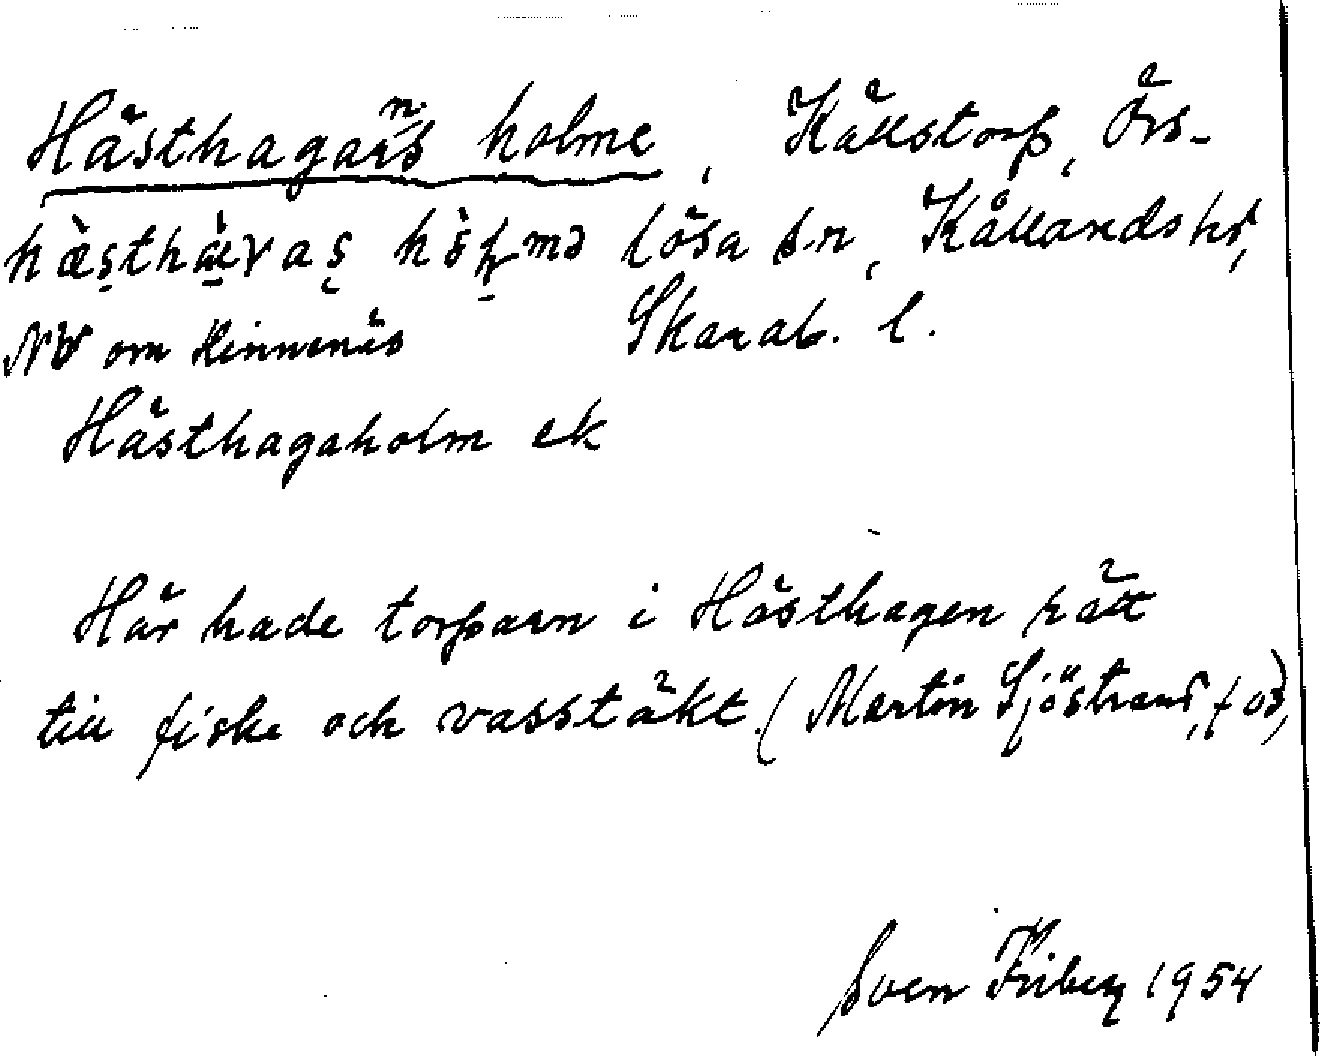 Hästhagans holme, Källstorp, Örs-
lösa s:n, Kållands hd,
NV om Kinnenäs Skarab. l.
Hästhagaholm ek
Här hade torparn i Hästhagen rätt
till fiske och vasstäkt. (Martin Sjöstrand, f 03)
Sven Friberg 1954